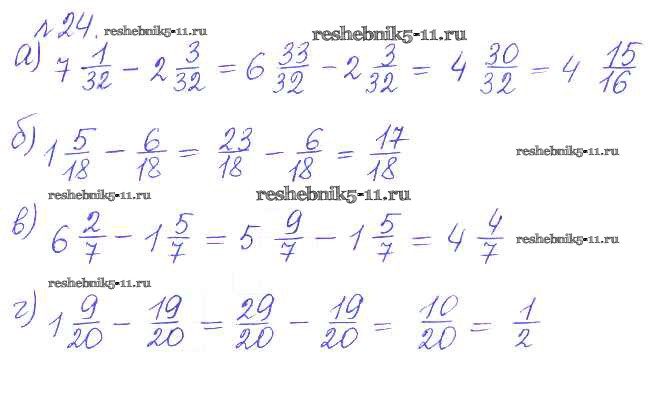 №24. reshebnik5-11.ru reshebnik5-11.ru
а) 7 1/32 - 2 3/32 = 6 33/32 - 2 3/32 = 4 30/32 = 4 15/16
б) 1 5/18 - 6/18 = 23/18 - 6/18 = 17/18 reshebnik5-11.ru
reshebnik5-11.ru reshebnik5-11.ru
в) 6 2/7 - 1 5/7 = 5 9/7 - 1 5/7 = 4 4/7 reshebnik5-11.ru
reshebnik5-11.ru
г) 1 9/20 - 19/20 = 29/20 - 19/20 = 10/20 = 1/2